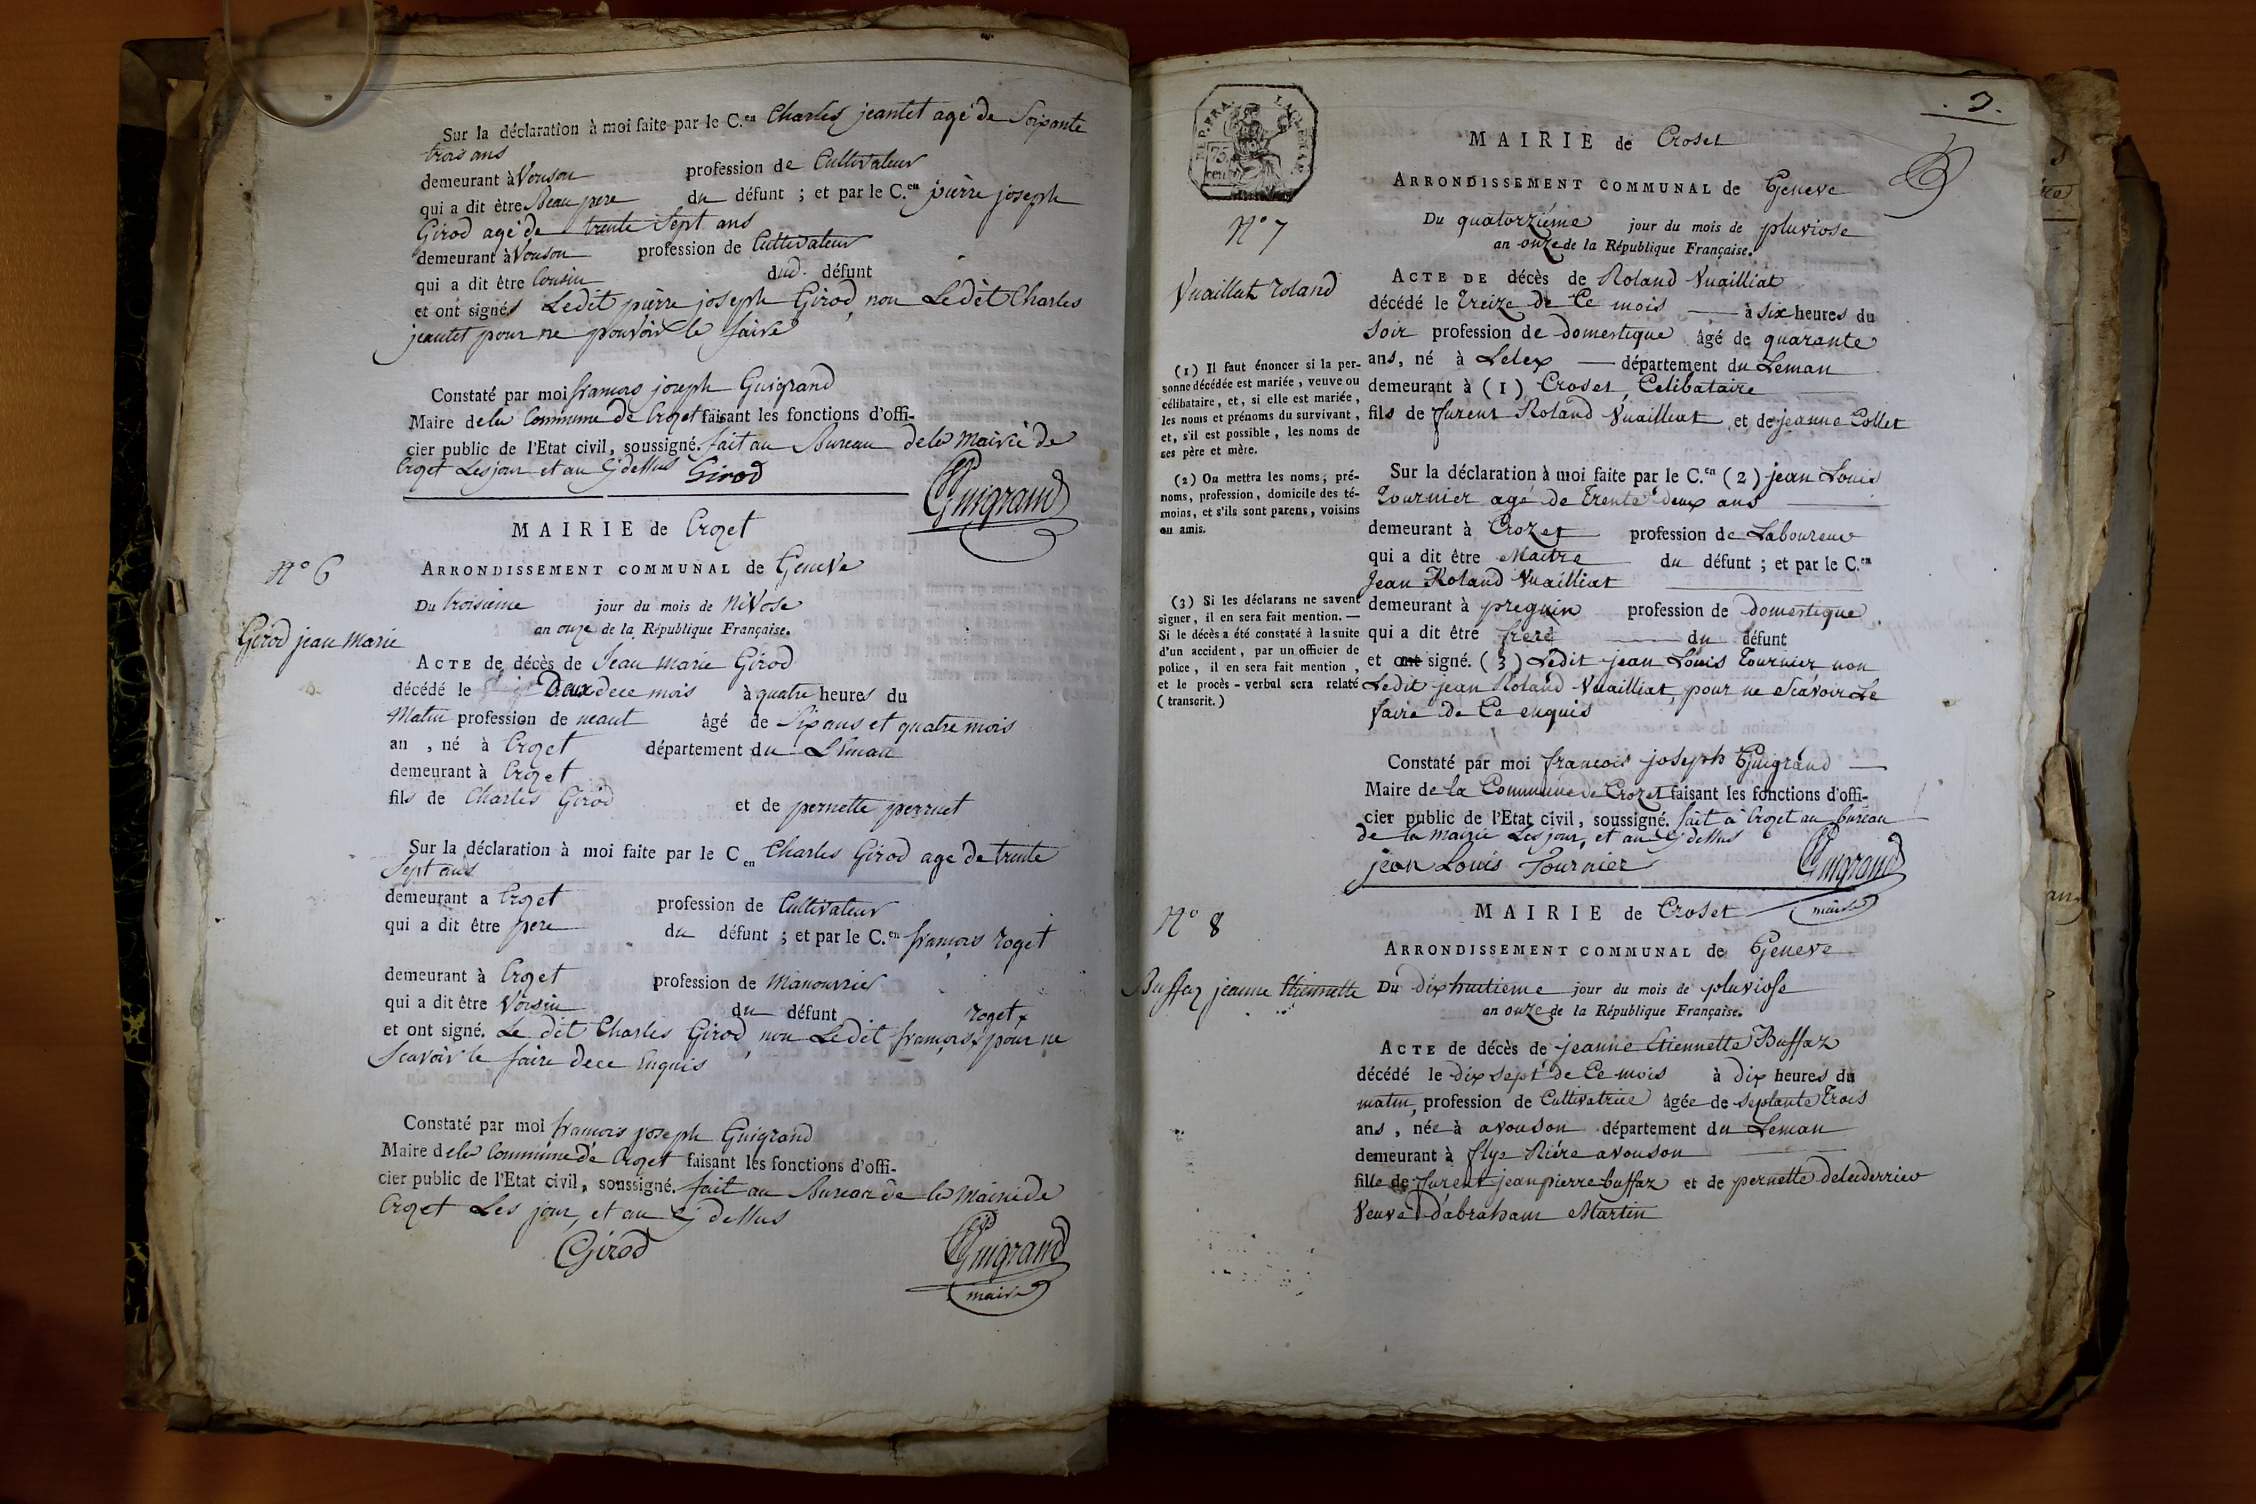 Sur la déclaration à moi faite par le C.en Charles jeantet agé de Soixante
trois ans
demeurant à Vouson profession de Cultivateur
qui a dit être Beau pere du défunt ; et par le C.en pierre joseph
Girod agé de trente sept ans
demeurant à Vouson profession de Cultivateur
qui a dit être Cousin dud. défunt
et ont signés Ledit pierre joseph Girod, non Ledit Charles
jeantet pour ne pouvoir le faire
Constaté par moi françois joseph Guigrand
Maire de la Commune de Crozet faisant les fonctions d'offi-
cier public de l'Etat civil, soussigné. fait au Bureau de la Mairie de
Crozet Les jour et an Cy dessus Girod
Guigrand
MAIRIE de Crozet
N° 6
ARRONDISSEMENT COMMUNAL de Geneve
Du troisieme jour du mois de Nivose
an onze de la République Française.
Girod jean Marie
ACTE de décès de Jean Marie Girod
décédé le Deux de ce mois à quatre heures du
Matin profession de neant âgé de Six ans et quatre mois
an , né à Crozet département du Léman
demeurant à Crozet
fils de Charles Girod et de pernette perruet
Sur la déclaration à moi faite par le C en Charles Girod age de trente
Sept ans
demeurant a Crozet profession de Cultivateur
qui a dit être pere du défunt ; et par le C.en françois roget
demeurant à Crozet profession de Manouvrier
qui a dit être Voisin du défunt roget x
et ont signé. Le dit Charles Girod, non Ledit françois x pour ne
Scavoir le faire de ce Enquis
Constaté par moi françois joseph Guigrand
Maire de la Commune de Crozet faisant les fonctions d'offi-
cier public de l'Etat civil, soussigné. fait au Bureau de la Mairie de
Crozet Les jour, et an Cy dessus
Girod
Guigrand
maire
REP. FRA.
75
cen
. 3 .
MAIRIE de Croset
ARRONDISSEMENT COMMUNAL de Geneve
N° 7
Du quatorziéme jour du mois de pluviose
an onze de la République Française.
Vuaillat roland
ACTE DE décès de Roland Vuailliat
décédé le Treize de Ce mois à six heures du
Soir profession de domestique âgé de quarante
ans, né à Lelex département du Leman
demeurant à (1) Croset, Celibataire
fils de furent Roland Vuailliat et de jeanne Collet
(1) Il faut énoncer si la per-
sonne décédée est mariée, veuve ou
célibataire, et, si elle est mariée,
les noms et prénoms du survivant,
et, s'il est possible, les noms de
ses père et mère.
Sur la déclaration à moi faite par le C.en (2) jean Louis
Tournier agé de Trente deux ans
demeurant à Crozet profession de Laboureur
qui a dit être Maitre du défunt ; et par le C.en
Jean Roland Vuailliat
demeurant à preguin profession de domestique
qui a dit être frere du défunt
et ont signé. (3) Ledit jean Louis Tournier non
Ledit jean Roland Vuailliat, pour ne Scavoir Le
faire de Ce enquis
(2) On mettra les noms, pré-
noms, profession, domicile des té-
moins, et s'ils sont parens, voisins
ou amis.
(3) Si les déclarans ne savent
signer, il en sera fait mention. —
Si le décès a été constaté à la suite
d'un accident, par un officier de
police, il en sera fait mention,
et le procès-verbal sera relaté
(transcrit.)
Constaté par moi francois joseph Guigrand
Maire de la Commune de Crozet faisant les fonctions d'offi-
cier public de l'Etat civil, soussigné. fait à Crozet au bureau
de la mairie Les jour, et an Cy dessus
jean Louis Tournier Guigrand
maire
MAIRIE de Croset
N° 8
ARRONDISSEMENT COMMUNAL de Geneve
Buffaz jeanne Etiennette
Du dix huitieme jour du mois de pluviose
an onze de la République Française.
ACTE de décès de jeanne Etiennette Buffaz
décédé le dix sept de Ce mois à dix heures du
matin, profession de Cultivatrice âgée de septante Trois
ans, née à avouson département du Leman
demeurant à flye Riére avouson
fille de furent jean pierre buffaz et de pernette delederrier
Veuve d'abraham Martin